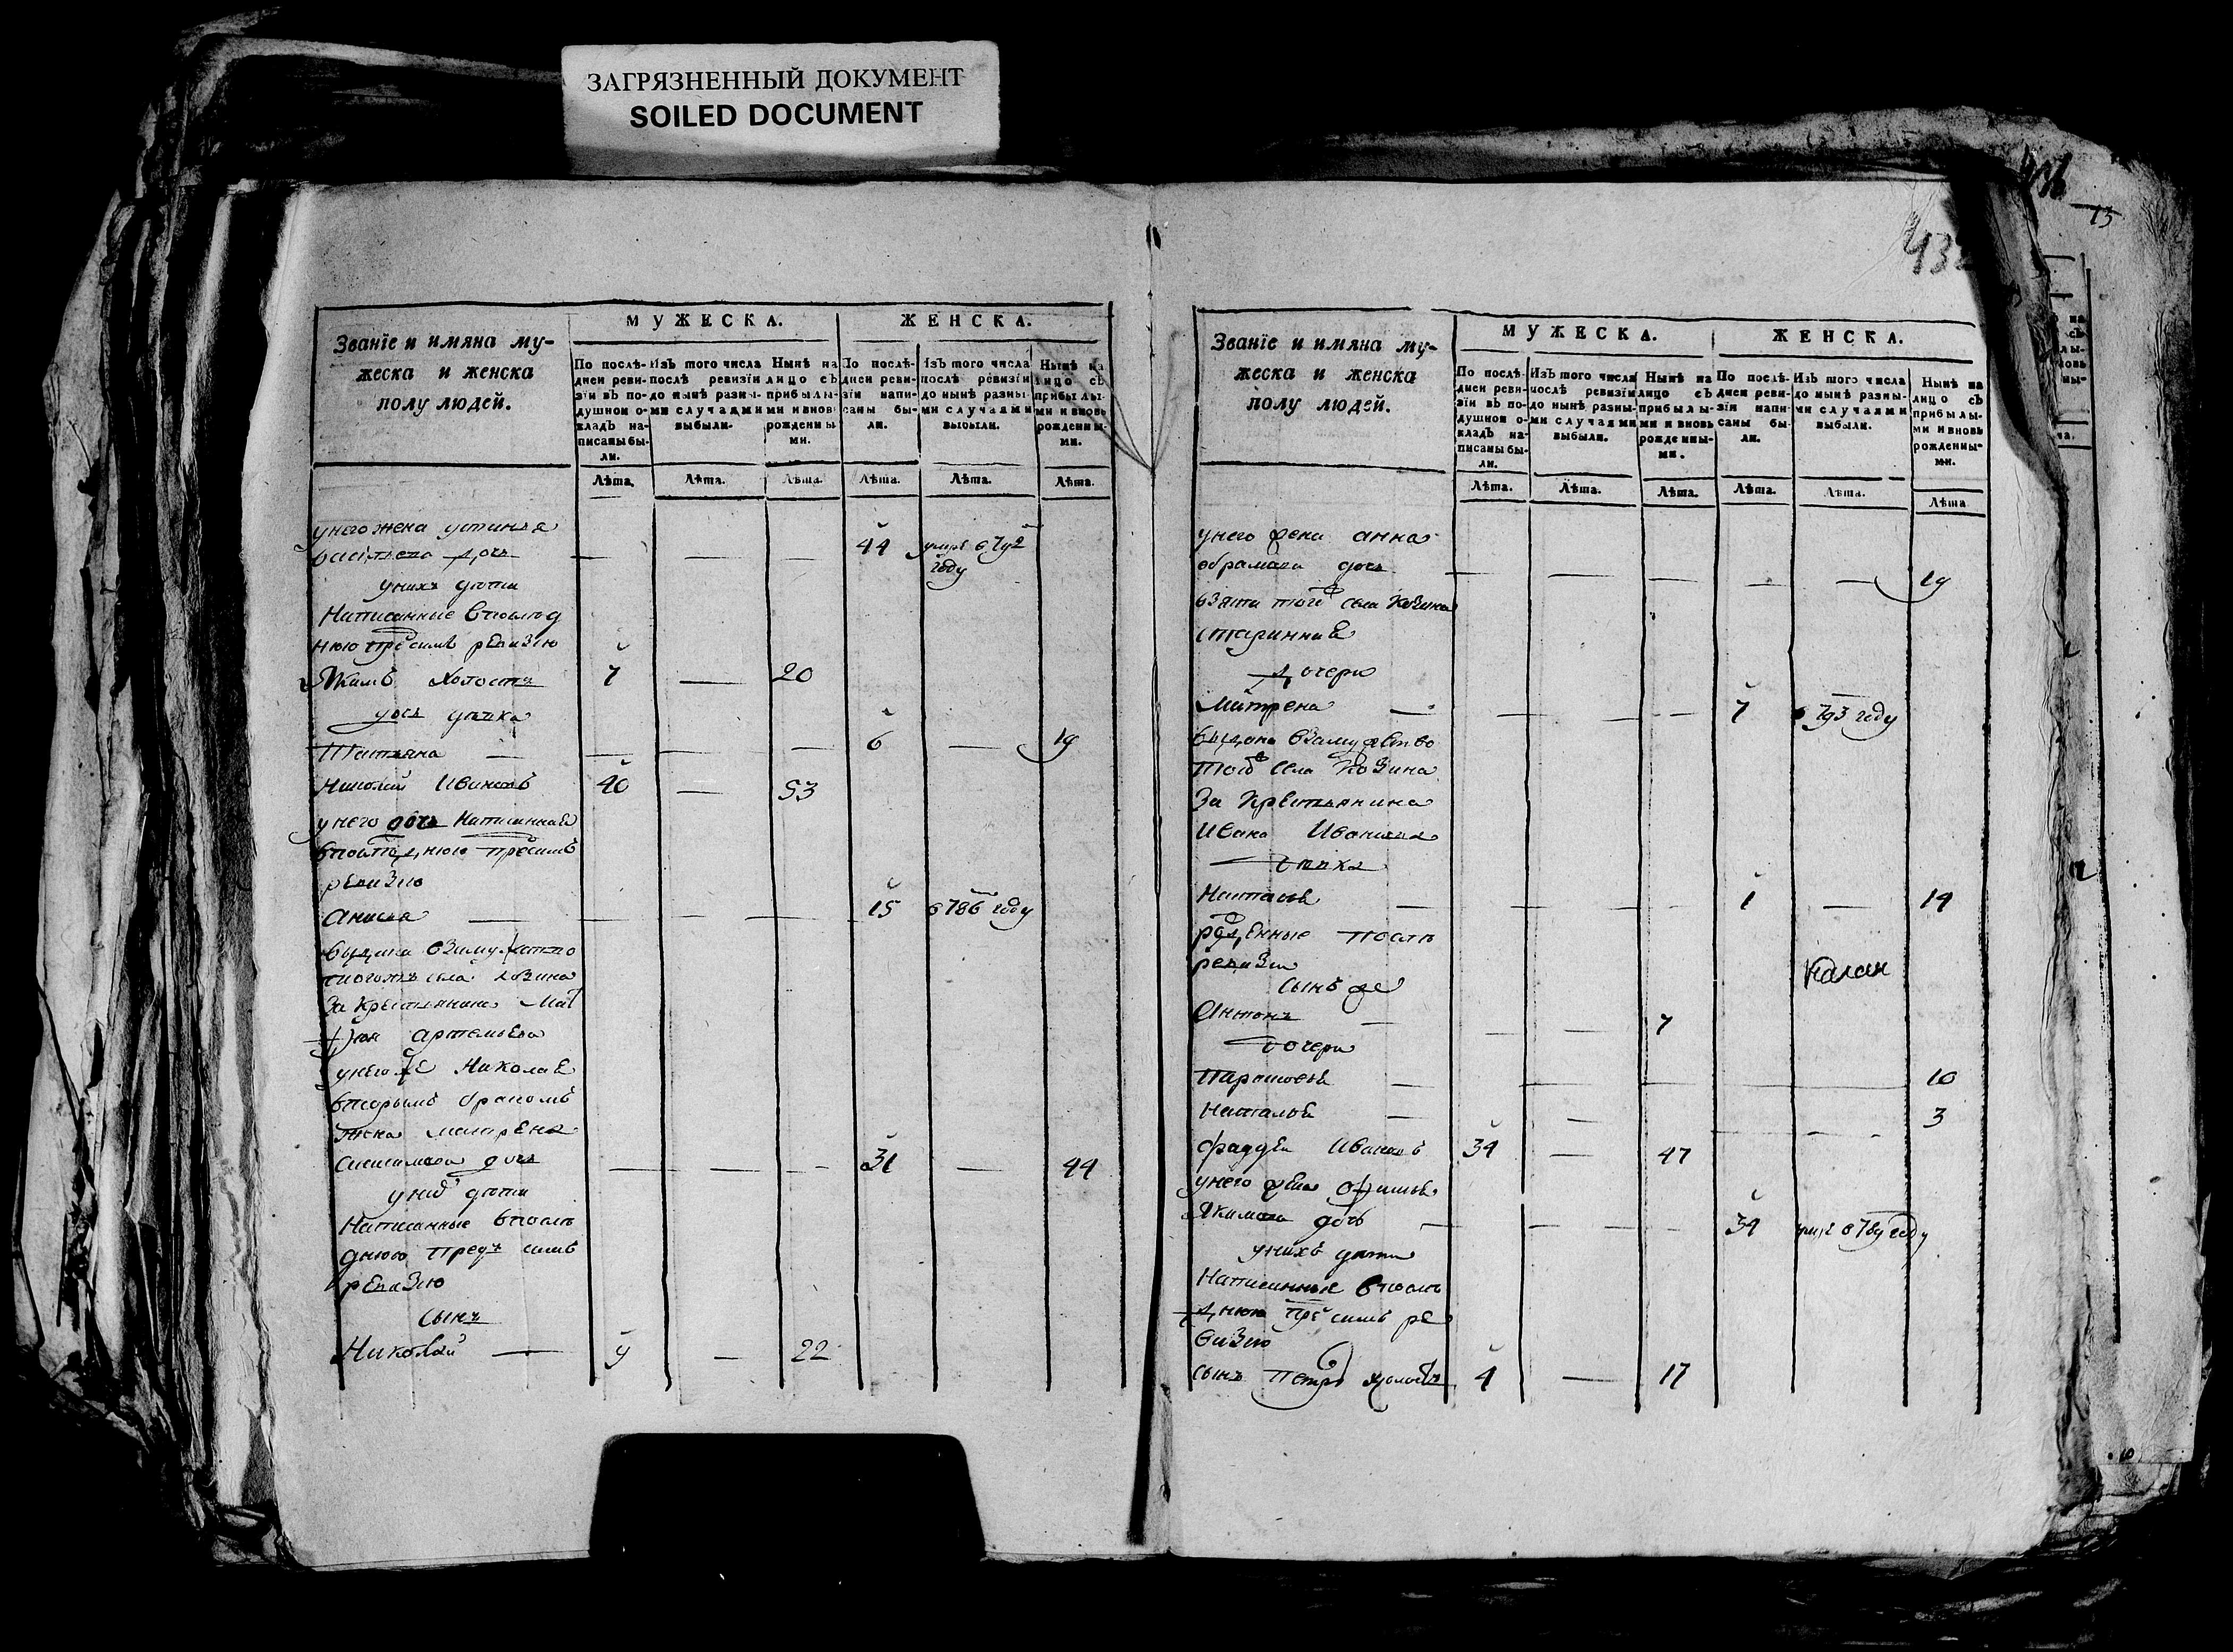 ЗАГРЯЗНЕННЫЙ ДОКУМЕНТ
SOILED DOCUMENT
432
Званїе и имяна му-
жеска и женска
полу людей.
МУЖЕСКА.
По послѣ-
днеи реви-
зїи въ по-
душнои о-
кладъ на-
писаны бы-
ли.
Изъ того числа
послѣ ревизїи
до нынѣ разны-
ми случаями
выбыли.
Нынѣ на
лицо съ
прибылы-
ми и вновь
рожденны
ми.
ЖЕНСКА.
По послѣ-
днеи реви-
зїи напи-
саны бы-
ли.
Изъ того числа
послѣ ревизїи
до нынѣ разны-
ми случаями
выбыли.
Нынѣ на
лицо съ
прибылы-
ми и вновь
рожденны-
ми.
Лѣта. Лѣта. Лѣта. Лѣта. Лѣта. Лѣта.
у него жена устинья
васильева дочь — — — 44 умре в 792
году
у них дѣти
Написанные в послед
нюю пред сим ревизию
Яким холост 7 — 20
дочь девка
Татьяна — — — — 6 — 19
Николай Иванов 40 — 53
у него дочь Написанная
в последнюю пред сим
ревизию
Анисья — — — — 15 в 786 году
выдана в замужство
того ж села козина
За крестьянина
артемьева
у него же Николая
вторым браком
жена матрена
дочь — — — 31 — 44
у них дѣти
Написанные в после
днюю пред сим
ревизию
сын
Николай — 9 — 22
Званїе и имяна му-
жеска и женска
полу людей.
МУЖЕСКА.
По послѣ-
днеи реви-
зїи въ по-
душнои о-
кладъ на-
писаны бы-
ли.
Изъ того числа
послѣ ревизїи
до нынѣ разны-
ми случаями
выбыли.
Нынѣ на
лицо съ
прибылы-
ми и вновь
рожденны-
ми.
ЖЕНСКА.
По послѣ-
днеи реви-
зїи напи-
саны бы-
ли.
Изъ того числа
до нынѣ разны-
ми случаями
выбыли.
Нынѣ на
лицо съ
прибылы-
ми и вновь
рожденны-
ми.
Лѣта. Лѣта. Лѣта. Лѣта. Лѣта. Лѣта
у него жена анна
абрамова дочь — — — — — 19
взята того ж села козина
старинная
дочери
Матрена — — — 7 в 793 году
выдана в замужство
того ж села козина
За крестьянина
Ивана Иванова
девка
Настасья — — — — 1 — 14
рожденные после
ревизи
сын же
Антон — — — 7
дочери
Парасковья — — 10
Наталья — — 3
фаддей Иванов 34 — 47
у него жена офимья
Якимова дочь — — — — 34 умре в 789 году
у них дети
Написанные в после
днюю пред сим ре
визию
сын Петр холост 4 — 17